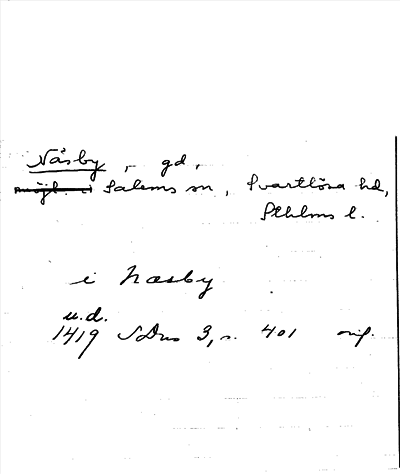 Näsby, gd,
Salems sn, Svartlösa hd,
Sthlms l.
i Næsby
u.d.
1419 SDns 3, s. 401 orig.